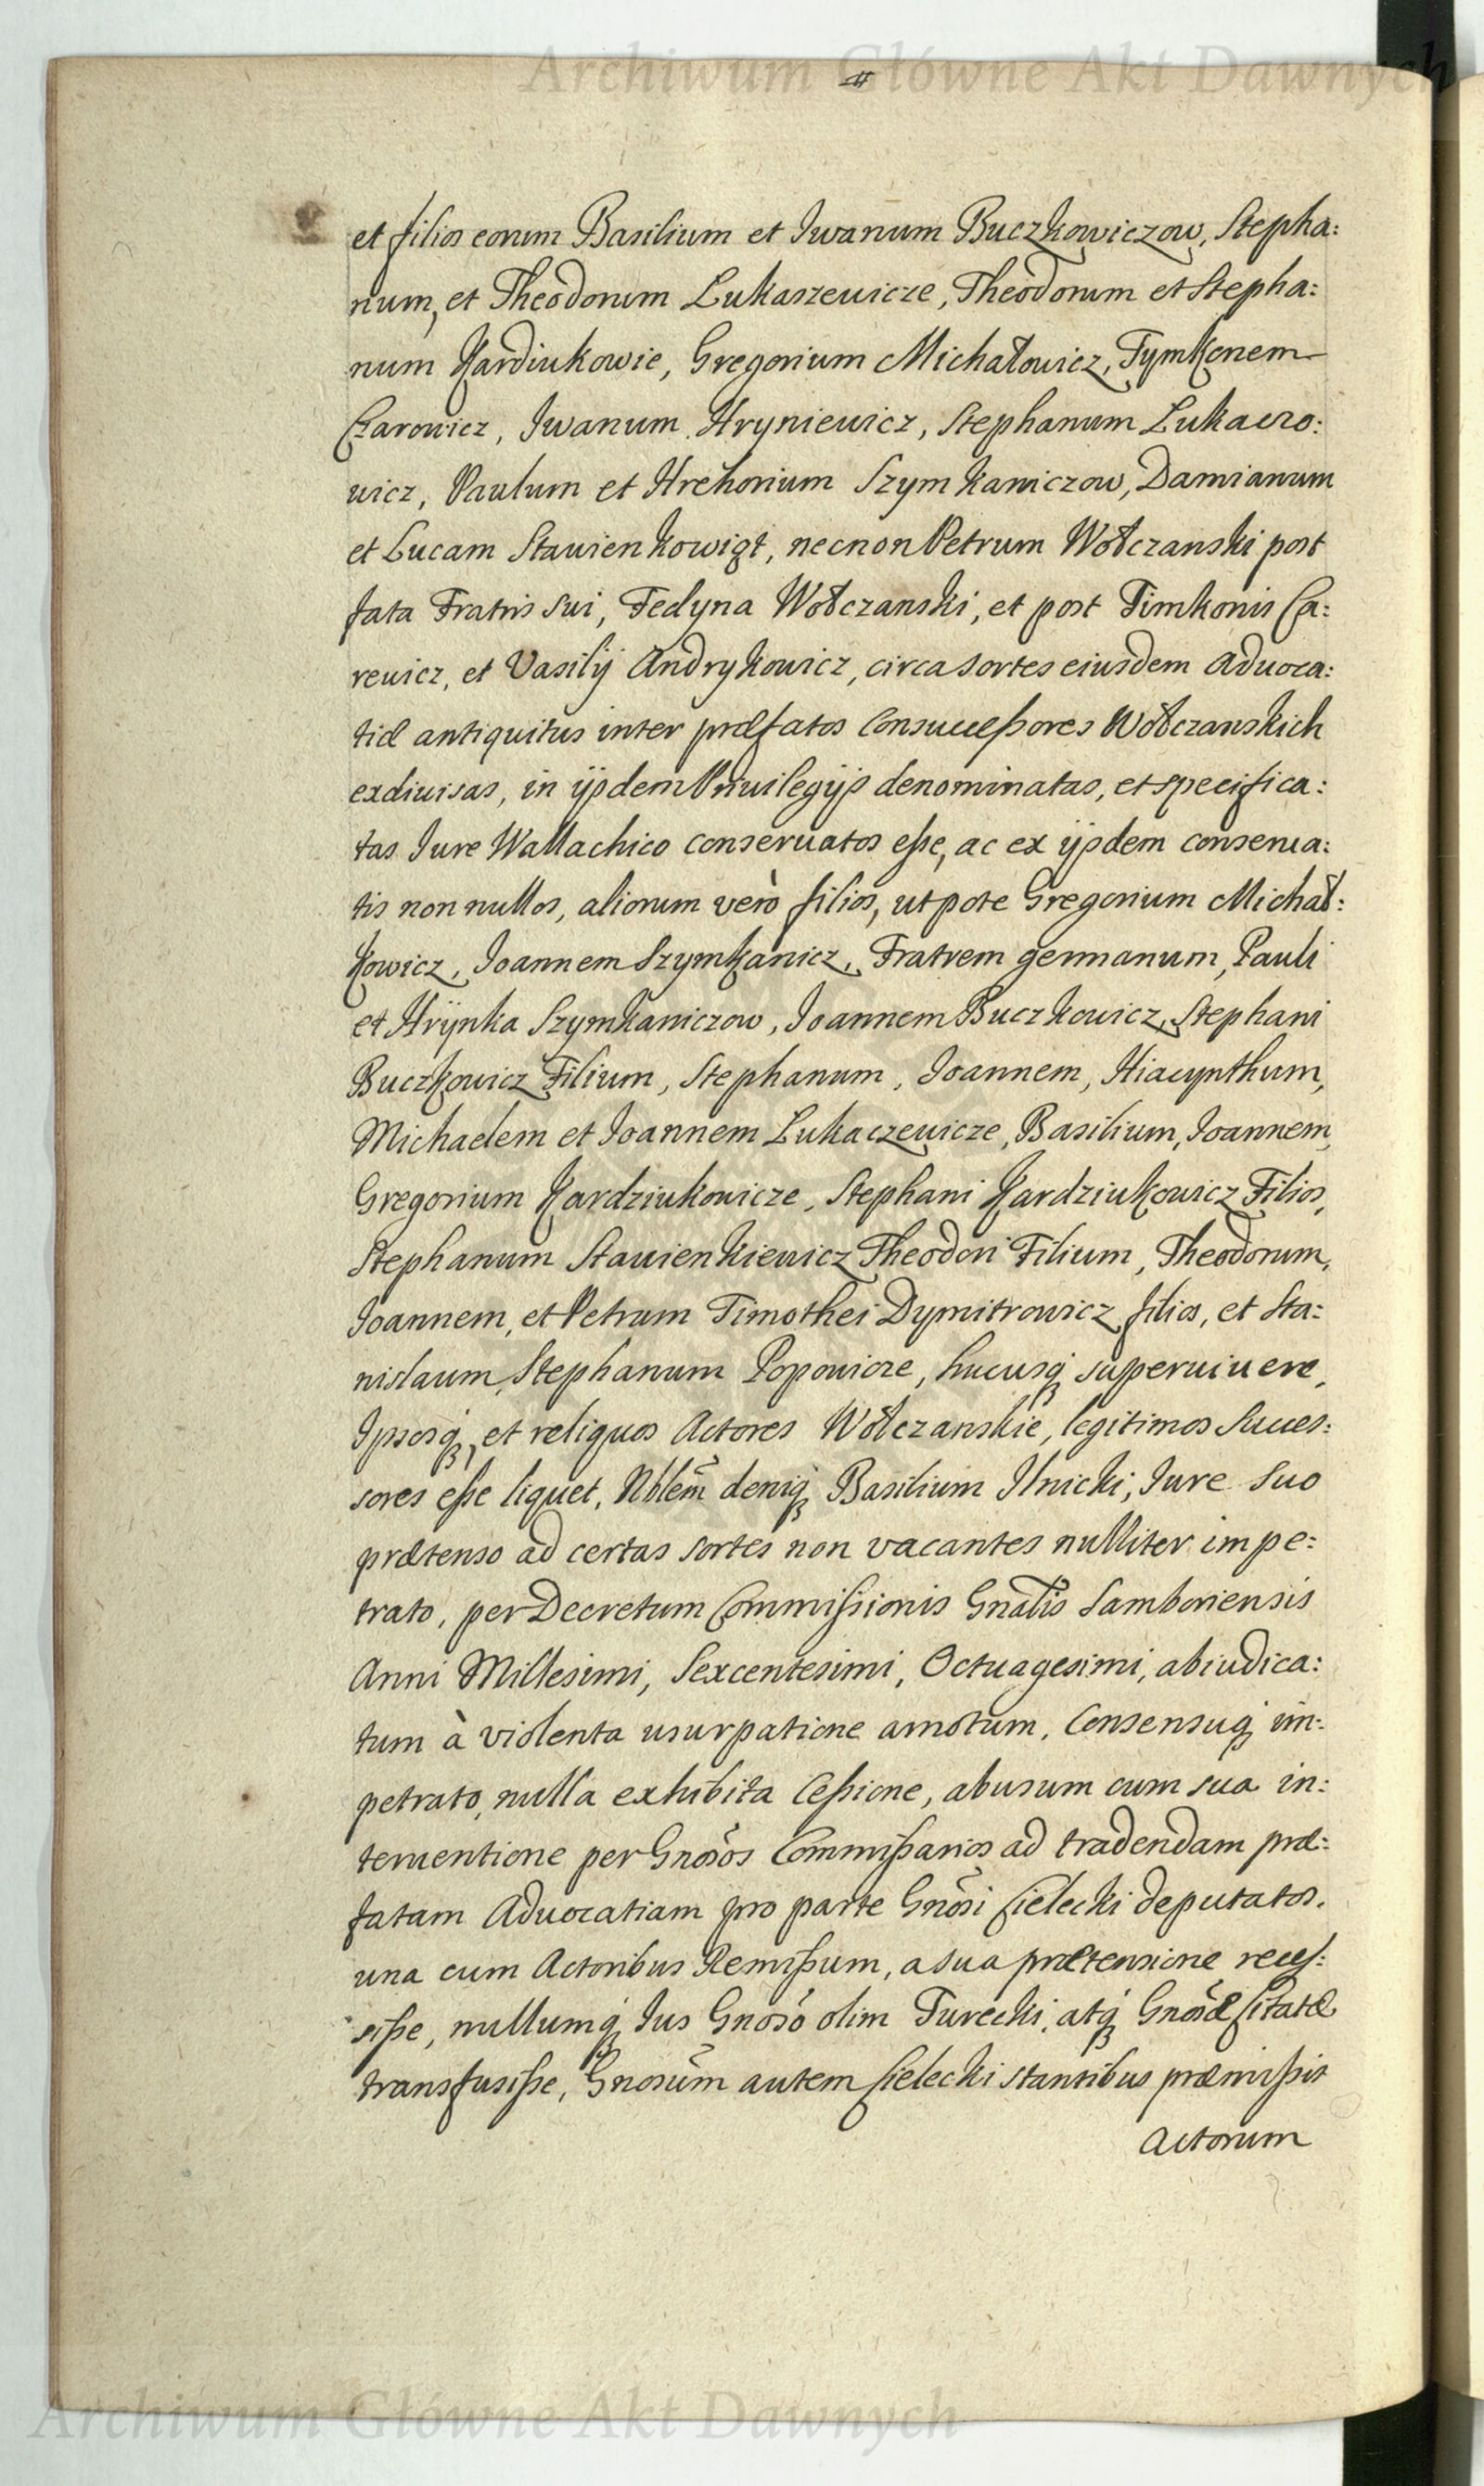 Archiwum Główne Akt Dawnych
et filios eorum Basilium et Iwanum Buczkowiczow, Stepha:
num, et Theodorum Lukaszewicze, Theodorum et Stepha:
num Kardiukowie, Gregorium Michałowicz, Tymkonem
Czarowicz, Iwanum Hryniewicz, Stephanum Lukaczo:
wicz, Paulum et Hrehorium Szymkaniczow, Damianum
et Lucam Stawienkowigt, necnon Petrum Wołczanski post
fata Fratris sui, Fedyna Wołczanski, et post Timkonis Ca:
rewicz, et Vasilij Andrykowicz, circa sortes eiusdem Advoca:
tiæ antiquitus inter præfatos Consuccessores Wołczanskich
exdivisas, in ijsdem Privilegijs denominatas, et specifica:
tas Iure Wallachico conservatos esse, ac ex ijsdem conserva:
tis non nullos, aliorum verò filios, utpote Gregorium Michał:
kowicz, Joannem Szymkanicz, Fratrem germanum, Pauli
et Hrÿnka Szymkaniczow, Joannem Buczkowicz, Stephani
Buczkowicz Filium, Stephanum, Joannem, Hiacynthum,
Michaelem et Joannem Lukaczewicze, Basilium, Joannem,
Gregorium Kardziukowicze, Stephani Kardziukowicz Filios,
Stephanum Stawienkiewicz Theodori Filium, Theodorum,
Joannem, et Petrum Timothei Dymitrowicz filios, et Sta:
nislaum, Stephanum Popowicze, hucusq̃ supervivere,
Ipsosq̃, et reliquos Actores Wołczanskie, legitimos Succes:
sores esse liquet, Nblem̃ deniq̃ Basilium Ilnicki, Iure suo
prætenso ad certas sortes non vacantes nulliter impe:
trato, per Decretum Commissionis Gnãlis Samboriensis
Anni Millesimi, Sexcentesimi, Octuagesimi, abiudica:
tum à violenta usurpatione amotum, Consensuq̃ im:
petrato, nulla exhibita Cessione, abusum cum sua in:
terventione per Gnosõs Commissarios ad tradendam præ:
fatam Advocatiam pro parte Gnõsi Cielecki deputatos,
una cum Actoribus Remissum, a sua prætensione reces:
sisse, nullumq̃ Ius Gnosõ olim Turecki, atq̃ Gnõsæ Citatæ
transfusisse, Gnosum̃ autem Cielecki stantibus præmissis
Actorum
Archiwum Główne Akt Dawnych